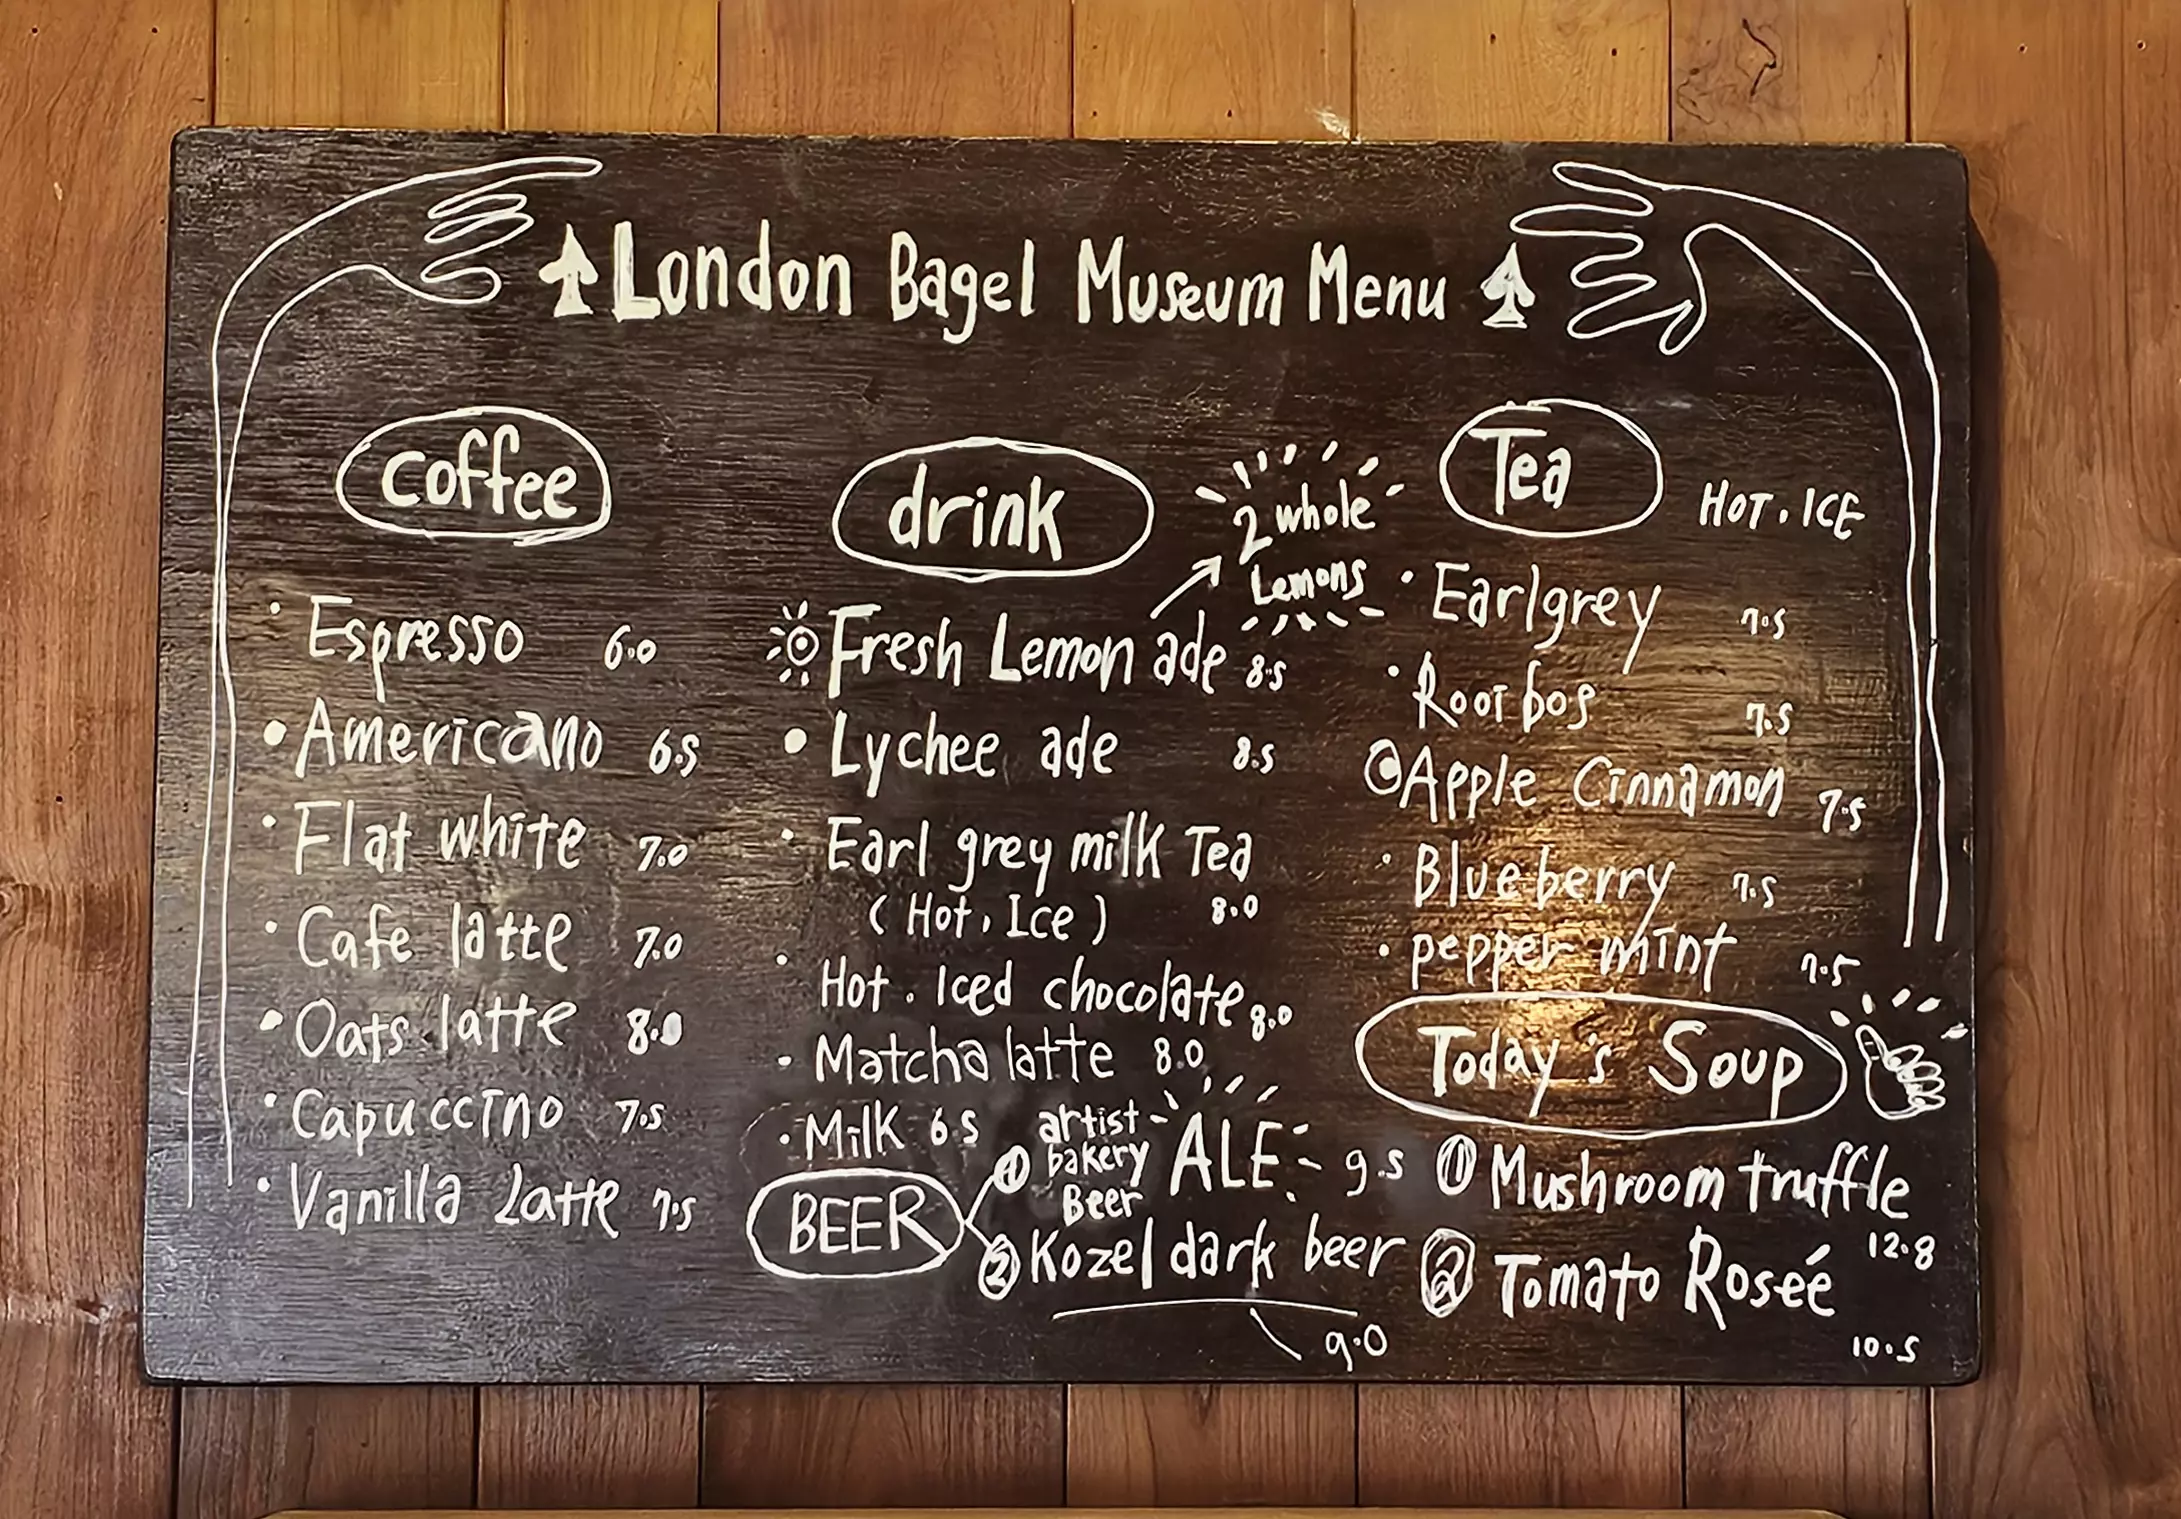 London Bagel Museum Menu
coffee
Espresso 6.0
Americano 6.5
Flat white 7.0
Cafe latte 7.0
Oats latte 8.0
Capuccino 7.5
Vanilla Latte 7.5
drink
2 whole
Lemons
Fresh Lemon ade 8.5
Lychee ade 8.5
Earl grey milk Tea
(Hot, Ice) 8.0
Hot. Iced chocolate 8.0
Matcha latte 8.0
Milk 6.5
BEER
① artist
bakery
Beer
ALE 9.5
② Kozel dark beer
9.0
Tea
HOT. ICE
Earlgrey 7.5
Rooibos 7.5
Apple Cinnamon 7.5
Blueberry 7.5
pepper mint 7.5
Today's Soup
① Mushroom truffle
12.8
② Tomato Roseé
10.5